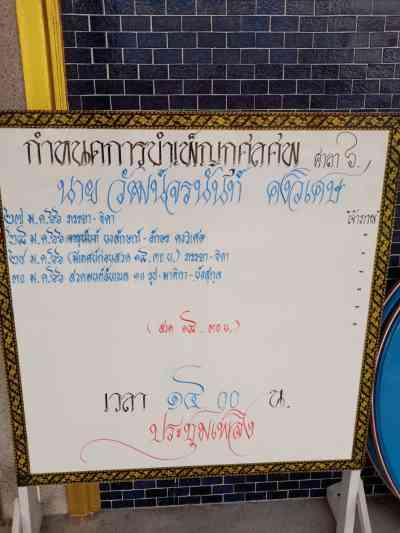 กำหนดการบำเพ็ญกุศลศพ ศาลา ๖
นาย วัฒน์จรนันท์ คงวิเศษ
เจ้าภาพ
๒๗ ม.ค. ๖๖ ภรรยา-ธิดา
๒๘ ม.ค. ๖๖
๒๙ ม.ค. ๖๖ (มีเทศน์ก่อนสวด ๑๘.๓๐ น.) ภรรยา-ธิดา
๓๐ ม.ค. ๖๖ สวดพระพุทธมนต์ ๑๐ รูป-มาติกา-บังสุกุล
(สวด ๑๘.๓๐ น.)
เวลา ๑๔.๐๐ น.
ประชุมเพลิง